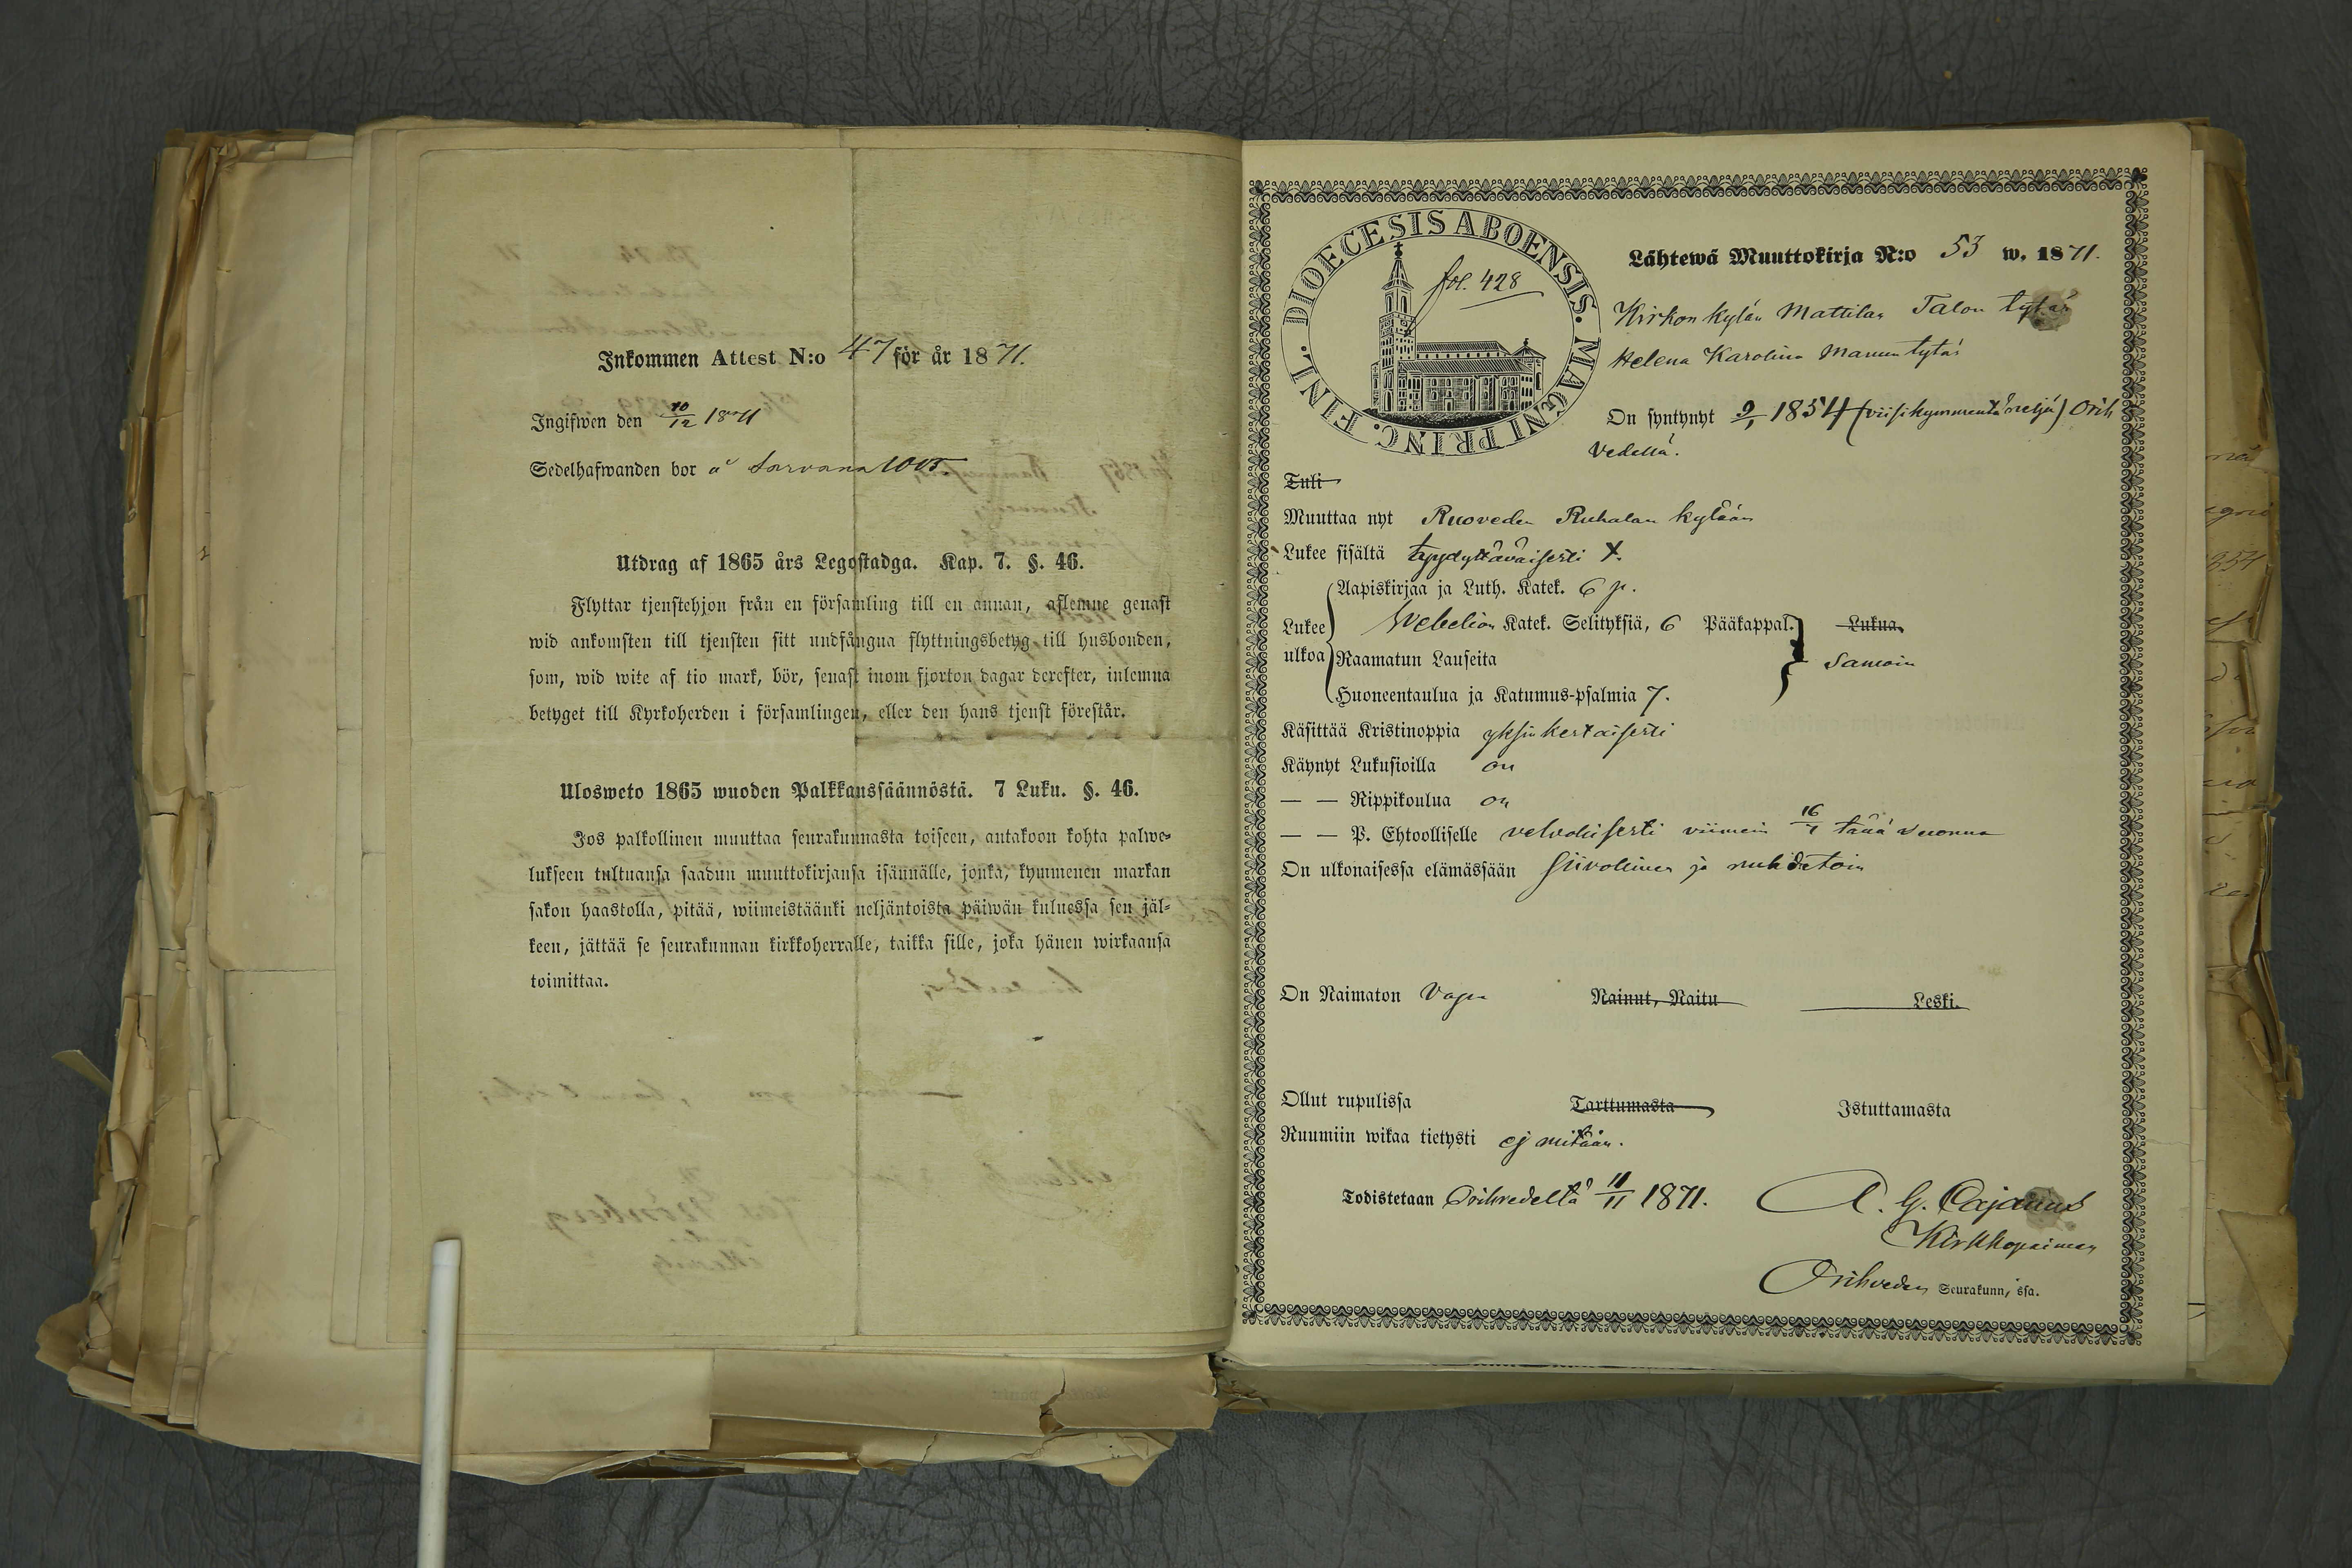 Inkommen Attest N:o 47 för år 1871.
Ingifwen den 10/12 1871
Sedelhafwanden bor å
Utdrag af 1865 års Legostadga. Kap. 7. §. 46.
Flyttar tjenstehjon från en församling till en annan, aflemne genast
wid ankomsten till tjensten sitt undfångna flyttningsbetyg till husbonden,
som, wid wite af tio mark, bör, senast inom fjorton dagar derefter, inlemna
betyget till Kyrkoherden i församlingen, eller den hans tjenst förestår.
Ulosweto 1865 wuoden Palkkaussäännöstä. 7 Luku. §. 46.
Jos palkollinen muuttaa seurakunnasta toiseen, antakoon kohta palwe-
lukseen tultuansa saadun muuttokirjansa isännälle, jonka, kymmenen markan
sakon haastolla, pitää, wiimeistäänki neljäntoista päiwän kuluessa sen jäl-
keen, jättää se seurakunnan kirkkoherralle, taikka sille, joka hänen wirkaansa
toimittaa.
DIOECESIS ABOENSIS. MAGNI PRINC. FINL.
fol. 428
Lähtewä Muuttokirja N:o 53 w. 1871.
Kirkon kylän Mattilan Talon tytär
Helena Karolina Manun tytär
On syntynyt 9/1 1854 (viisikymmentä neljä) Orih
vedellä.
Tuli
Muuttaa nyt Ruoveden Ruhalan kylään
Lukee sisältä tyydyttäväisesti X.
Aapiskirjaa ja Luth. Katek. 6 p.
Lukee ulkoa
Webelion Katek. Selityksiä, 6 Pääkappal. Lukua
Raamatun Lauseita Samoin
Huoneentaulua ja Katumus-psalmia 7.
Käsittää Kristinoppia yksinkertaisesti
Käynyt Lukusioilla on
— — Rippikoulua on
— — P. Ehtoolliselle velvollisesti viimein 16/7 tänä vuonna
On ulkonaisessa elämässään siivollinen ja nuhdetoin
On Naimaton Vapa Nainut, Naitu Leski.
Ollut rupulissa Tarttumasta Istuttamasta
Ruumiin wikaa tietysti ej mitään.
Todistetaan Orihvedeltä 11/11 1871. A. G. Cajanus
Kirkkopaimen
Orihveden Seurakunn, ssa.